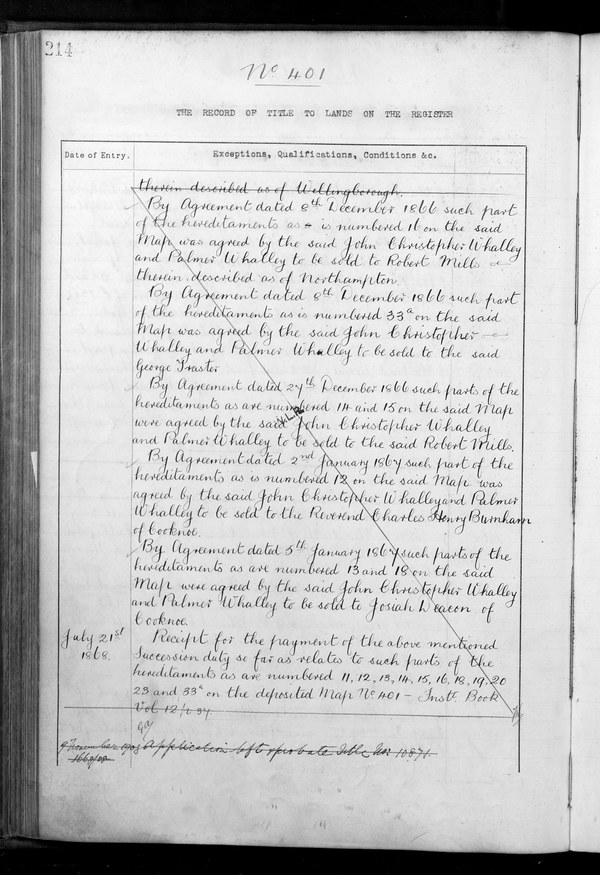 214
No. 401
THE RECORD OF TITLE TO LANDS ON THE REGISTER
Date of Entry.
Exceptions, Qualifications, Conditions &c.
therein described as of Wellingborough.
By Agreement dated 8th December 1866 such part
of the hereditaments as is numbered 11 on the said
Map was agreed by the said John Christopher Whalley
and Palmer Whalley to be sold to Robert Mills
therein described as of Northampton.
By Agreement dated 8th December 1866 such part
of the hereditaments as is numbered 33a on the said
Map was agreed by the said John Christopher
Whalley and Palmer Whalley to be sold to the said
George Traster
By Agreement dated 27th December 1866 such parts of the
hereditaments as are numbered 14 and 15 on the said Map
were agreed by the said John Christopher Whalley
and Palmer Whalley to be sold to the said Robert Mills.
By Agreement dated 2nd January 1867 such part of the
hereditaments as is numbered 12 on the said Map was
agreed by the said John Christopher Whalley and Palmer
Whalley to be sold to the Reverend Charles Henry Burnham
of Cooknoe.
By Agreement dated 5th January 1867 such parts of the
hereditaments as are numbered 13 and 18 on the said
Map were agreed by the said John Christopher Whalley
and Palmer Whalley to be sold to Josiah Deacon of
Cooknoe.
July 21st
1868.
Receipt for the payment of the above mentioned
Succession duty so far as relates to such parts of the
hereditaments as are numbered 11, 12, 13, 14, 15, 16, 18, 19, 20
23 and 33a on the deposited Map No 401 - Instt. Book
Vol 12 p 34.
Application